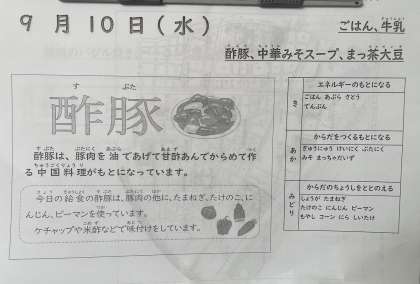 9月10日(水)
ごはん、牛乳
酢豚、中華みそスープ、まっ茶大豆
酢豚
酢豚は、豚肉を油であげて甘酢あんでからめて作
る中国料理がもとになっています。
今日の給食の酢豚は、豚肉の他に、たまねぎ、たけのこ、に
んじん、ピーマンを使っています。
ケチャップや米酢などで味付けをしています。
エネルギーのもとになる
き
ごはん あぶら さとう
でんぷん
からだをつくるもとになる
あか
ぎゅうにゅう けいにく ぶたにく
みそ まっちゃだいず
からだのちょうしをととのえる
みどり
しょうが たまねぎ
たけのこ にんじん ピーマン
もやし コーン にら しいたけ